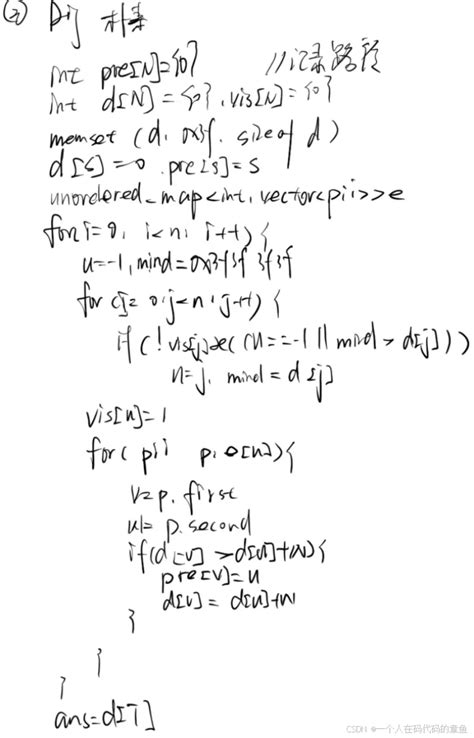 ② Dij 朴素
int pre[N]={0} //记录路径
int d[N]={0}, vis[N]={0}
memset(d, 0x3f, sizeof d)
d[s]=0 pre[s]=s
unordered_map<int, vector<pii>>e
for i=0, i<n, i++){
u=-1, mind=0x3f3f3f3f
for(j=0,j<n,j++){
if(!vis[j]&&(u==-1||mind>d[j]))
u=j, mind=d[j]
vis[u]=1
for(pii p:e[u]){
v=p.first
w=p.second
if(d[v]>d[u]+w){
pre[v]=u
d[v]=d[u]+w
}
}
}
ans=d[T]
CSDN @一个人在码代码的章鱼